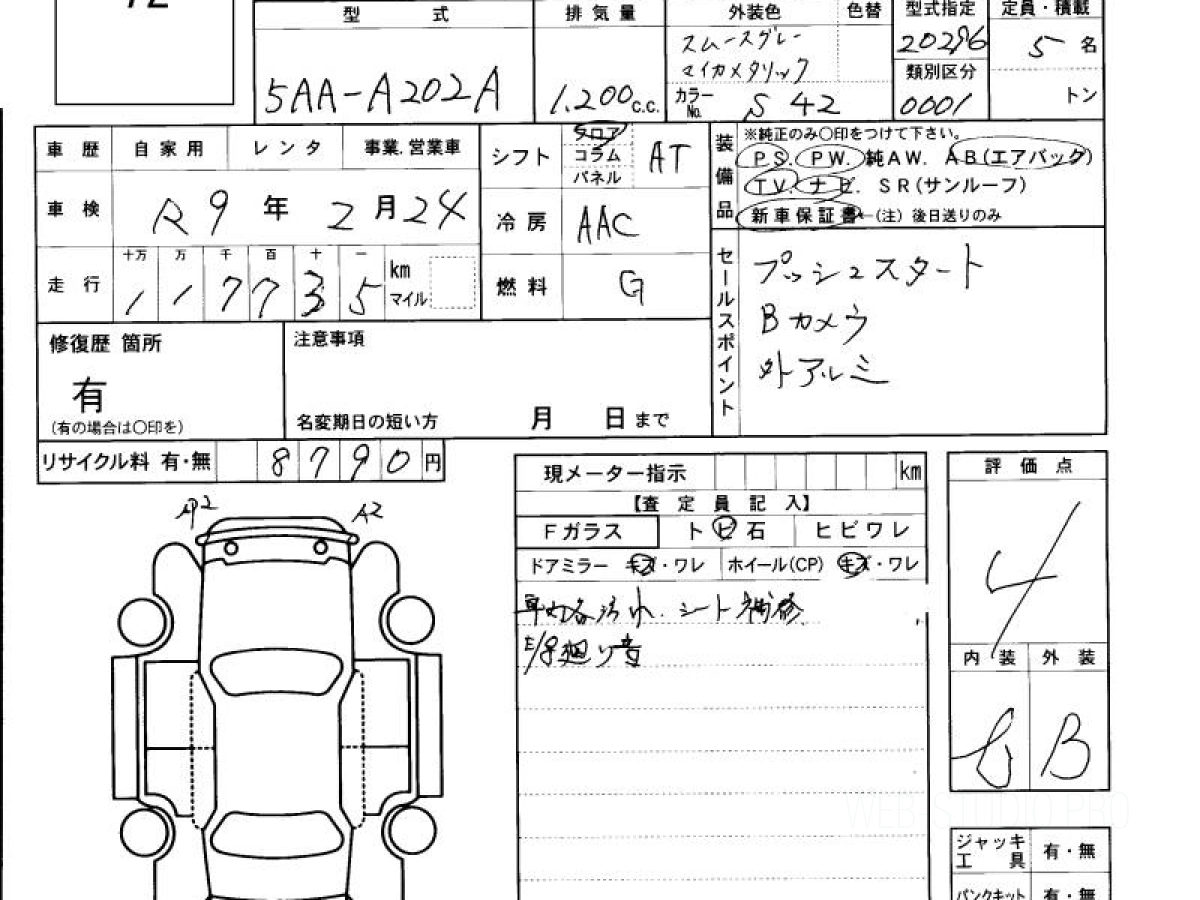 型 式
5AA-A202A
排気量
1.200 c.c.
外装色
色替
スムースグレー
マイカメタリック
カラーNo.
S 42
型式指定
20296
類別区分
0001
定員・積載
5 名
トン
車歴 自家用 レンタ 事業.営業車
車検 R 9 年 2 月 24
走行 十万 万 千 百 十 一
1 1 7 7 3 5 km マイル
シフト フロア コラム パネル AT
冷房 AAC
燃料 G
装備品
※純正のみ○印をつけて下さい。
PS. PW. 純AW. AB(エアバッグ)
TV. ナビ. SR(サンルーフ)
新車保証書←(注) 後日送りのみ
セールスポイント
プッシュスタート
Bカメラ
外アルミ
修復歴 箇所
有
(有の場合は○印を)
注意事項
名変期日の短い方 月 日 まで
リサイクル料 有・無 8790円
A2
現メーター指示 km
【査定員記入】
Fガラス トビ石 ヒビワレ
ドアミラー キズ・ワレ ホイール(CP) キズ・ワレ
車内各汚れ.シート補修
廻り音
評価点
4
内装 外装
B
WEB STUDIO PRO
ジャッキ 工具 有・無
パンクキット 有・無